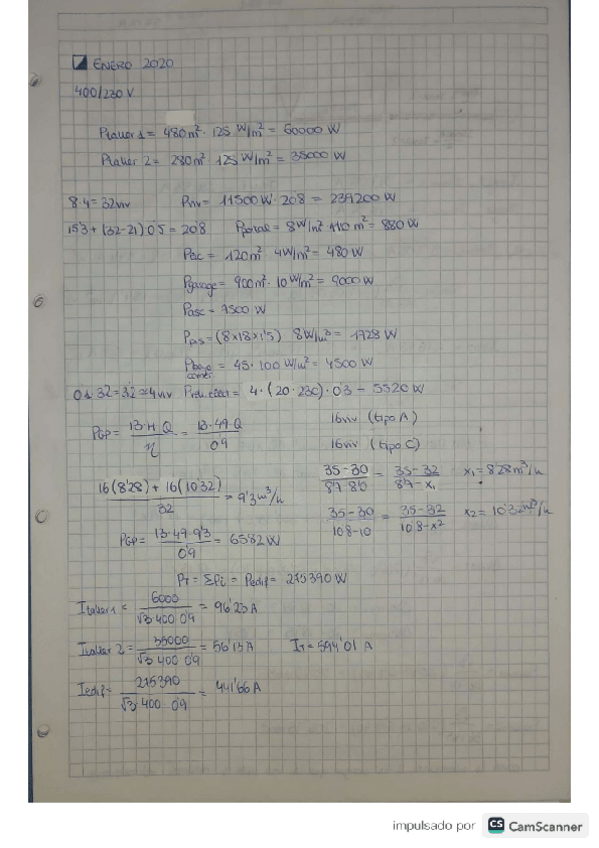 ENERO 2020
400/230 V
Ptaller 1 = 480m². 125 W/m² = 60000 W
Ptaller 2 = 280m² 125 W/m² = 35000 W
8·4 = 32viv Pviv = 11500W · 20'8 = 239200 W
15'3 + (32-21) 0'5 = 20'8 Pportal = 8W/m² 110 m² = 880 W
Pesc = 120m² 4W/m² = 480 W
Pgarage = 900m² · 10 W/m² = 9000 W
Pasc = 7500 W
= (8x18x1'5) 8W/m³ = 1728 W
= 45 · 100 W/m² = 4500 W
0'1 32 = 3'2 ≈ 4viv = 4 · (20 · 230) · 0'3 = 5520 W
PGP = 13· H Q / η = 13·49 Q / 0'9
16viv (tipo A)
16viv (tipo C)
16(8'28) + 16(10'32) / 32 = 9'3 m³/h
35-30 / 8'7-8'0 = 35-32 / 8'7-x₁ x₁ = 8'28m³/h
35-30 / 10'8-10 = 35-32 / 10'8-x2 x2 = 10'32m³/h
PGP = 13·49·9'3 / 0'9 = 6582 W
PT = ΣPi = Pedif = 275390 W
Italler 1 = 6000 / √3·400·0'9 = 96'23 A
Italler 2 = 35000 / √3·400·0'9 = 56'13A IT = 594'01 A
Iedif = 275390 / √3·400·0'9 = 441'66 A
impulsado por CS CamScanner